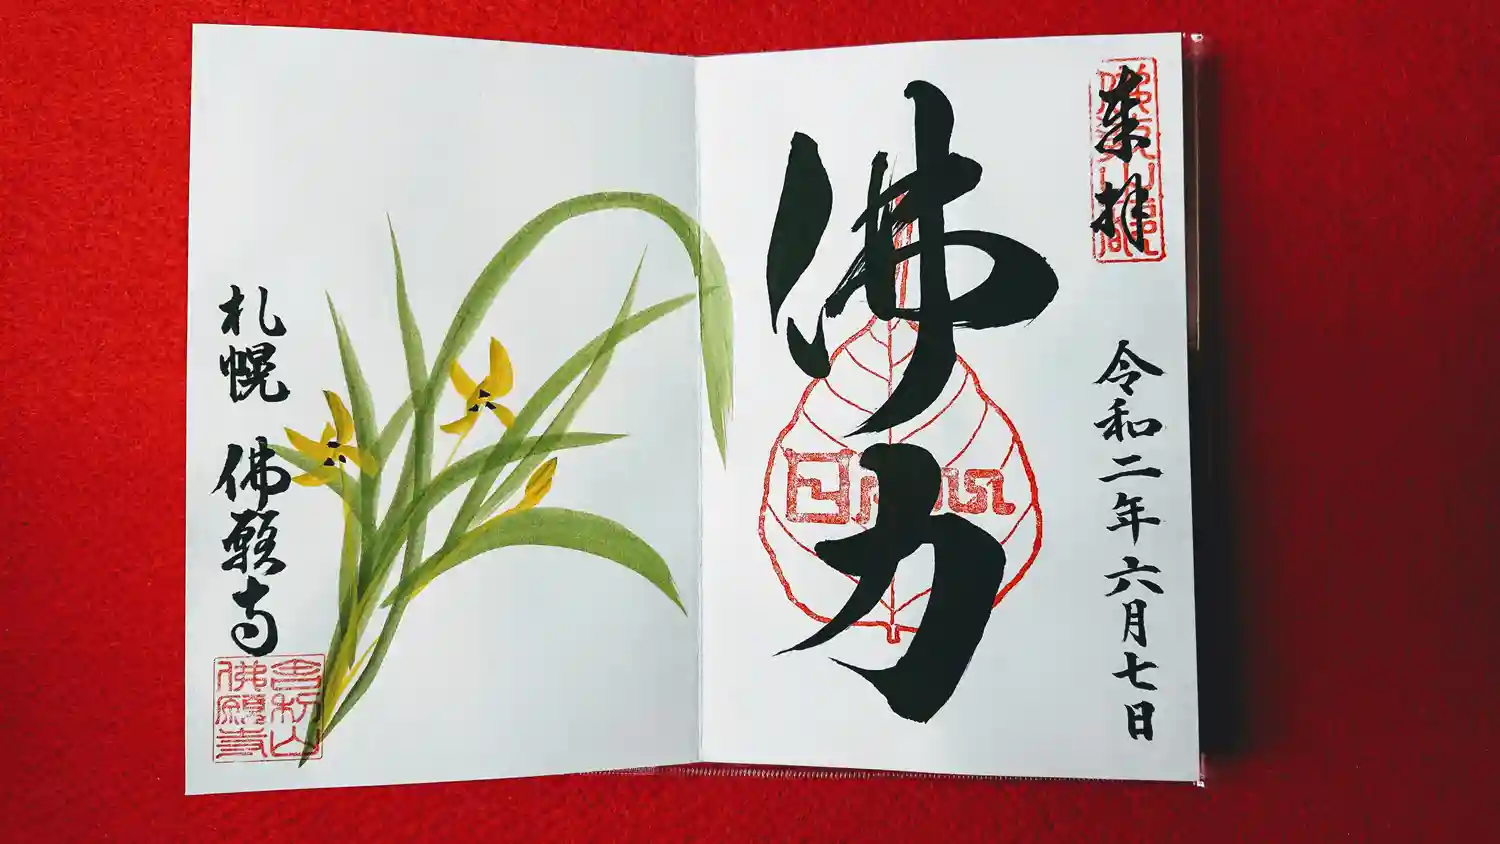 来拝
令和二年六月七日
佛力
札幌 佛願寺
舎利山
佛願寺